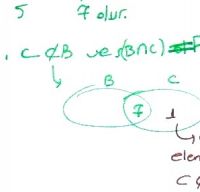 5 7 olur.
. C ⊄ B ve s(B∩C)
B C
7 1
elem
C